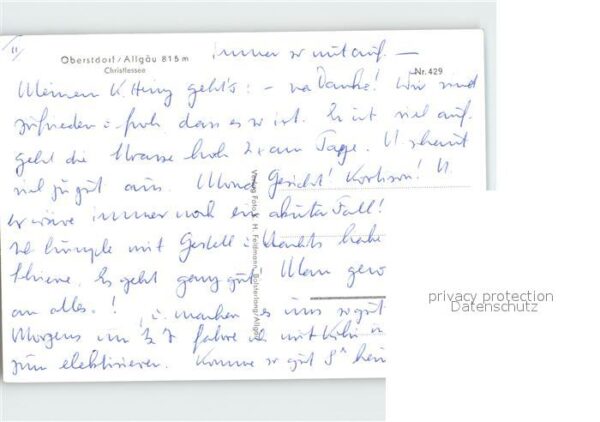 immer so mit auf. —
Oberstdorf/Allgäu 815 m
Christlessee
Nr. 429
Meinem K. Heinz geht's: - na Danke! Wir sind
zufrieden u. froh, dass es so ist. Er ist viel auf.
geht die Strasse hoch 2x am Tage. U. schaut
viel zu gut aus. Mond Gesicht! Kortison! U.
er wäre immer noch ein akuter Fall!
Ich humple mit Gestell u. Nachts habe
Schiene. Es geht ganz gut. Man gew
an alles.! u. machen es uns so gut
Morgens um 1/2 7 fahre ich mit
zum elektisieren. Komme so gut heim
Verlag Foto K. H. Feldmann, Bolsterlang/Allgäu
privacy protection
Datenschutz